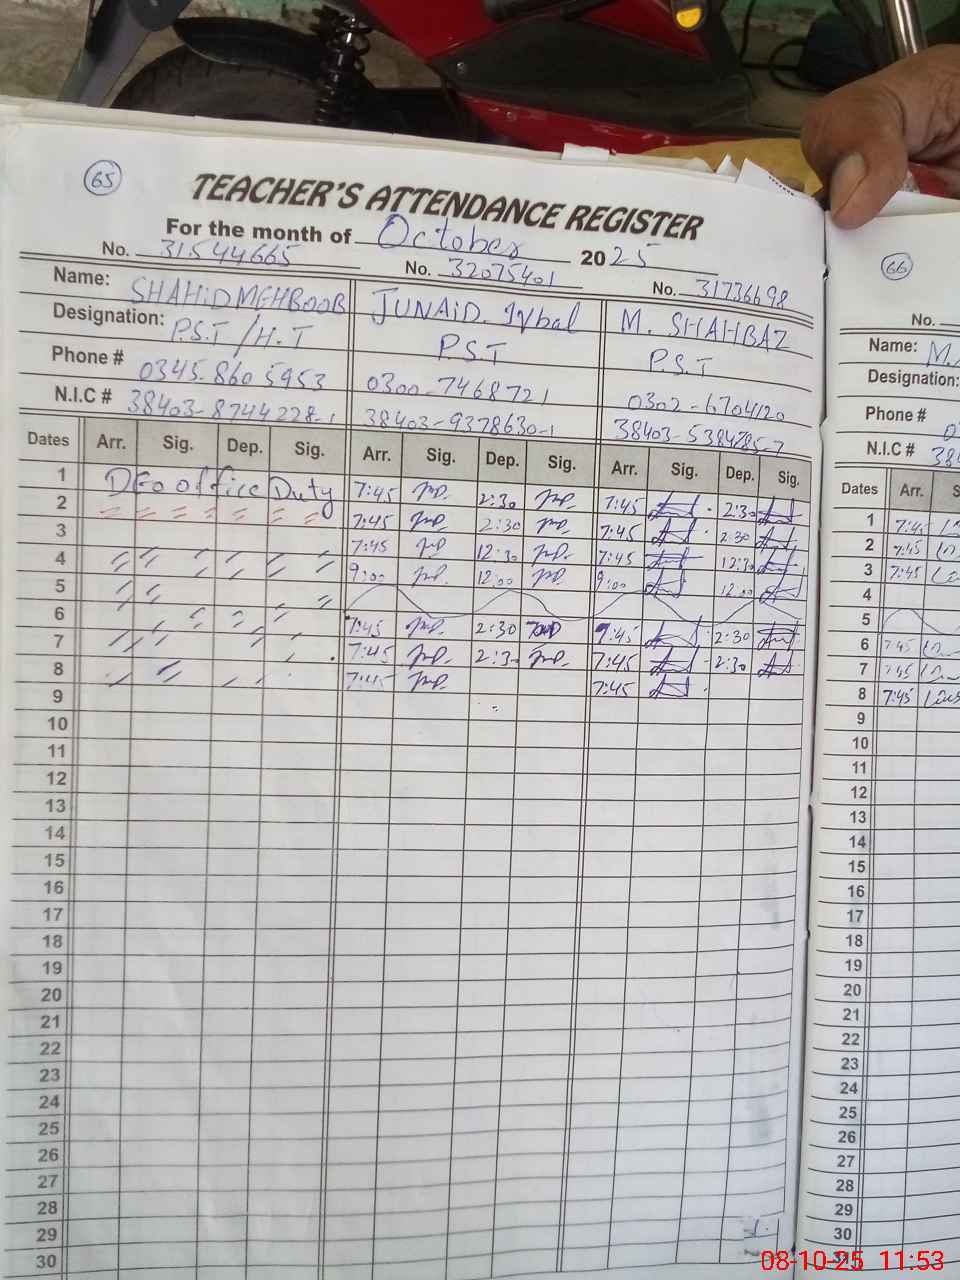 65
TEACHER'S ATTENDANCE REGISTER
For the month of October 2025
No. 31544665 No. 32075401 No. 31736698
Name: SHAHID MEHBOOB JUNAID. Iqbal M. SHAHBAZ
Designation: P.S.T / H.T P.S.T P.S.T
Phone # 0345.860 5953 0300-7468721 0302-6704120
N.I.C # 38403-8744228-1 38403-9378630-1 38403-5384285-7
Dates Arr. Sig. Dep. Sig. Arr. Sig. Dep. Sig. Arr. Sig. Dep. Sig.
1 DEO office Duty 7:45 2:30 7:45 2:30
2 7:45 2:30 7:45 2:30
3 7:45 12:30 7:45 12:30
4 9:00 12:00 9:00 12:00
5
6 7:45 2:30 7:45 2:30
7 7:45 2:30 7:45 2:30
8 7:45 7:45
9
10
11
12
13
14
15
16
17
18
19
20
21
22
23
24
25
26
27
28
29
30
66
No.
Name: M.
Designation:
Phone #
N.I.C # 384
Dates Arr. S
1 7:45
2 7:45
3 7:45
4
5
6 7:45
7 7:45
8 7:45
9
10
11
12
13
14
15
16
17
18
19
20
21
22
23
24
25
26
27
28
29
30
31
08-10-25 11:53